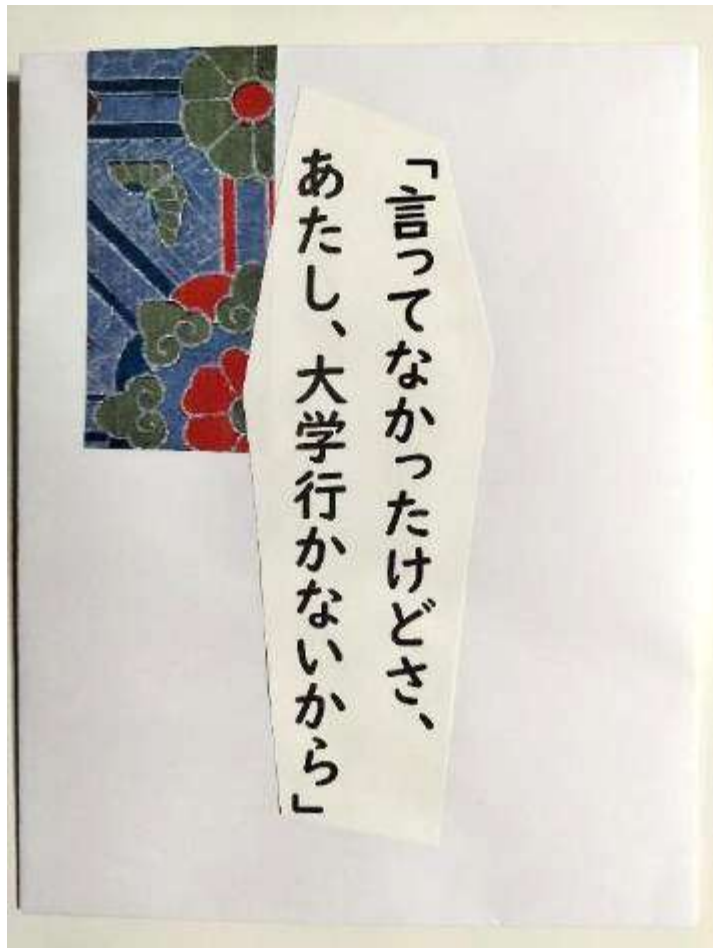 「言ってなかったけどさ、
あたし、大学行かないから」